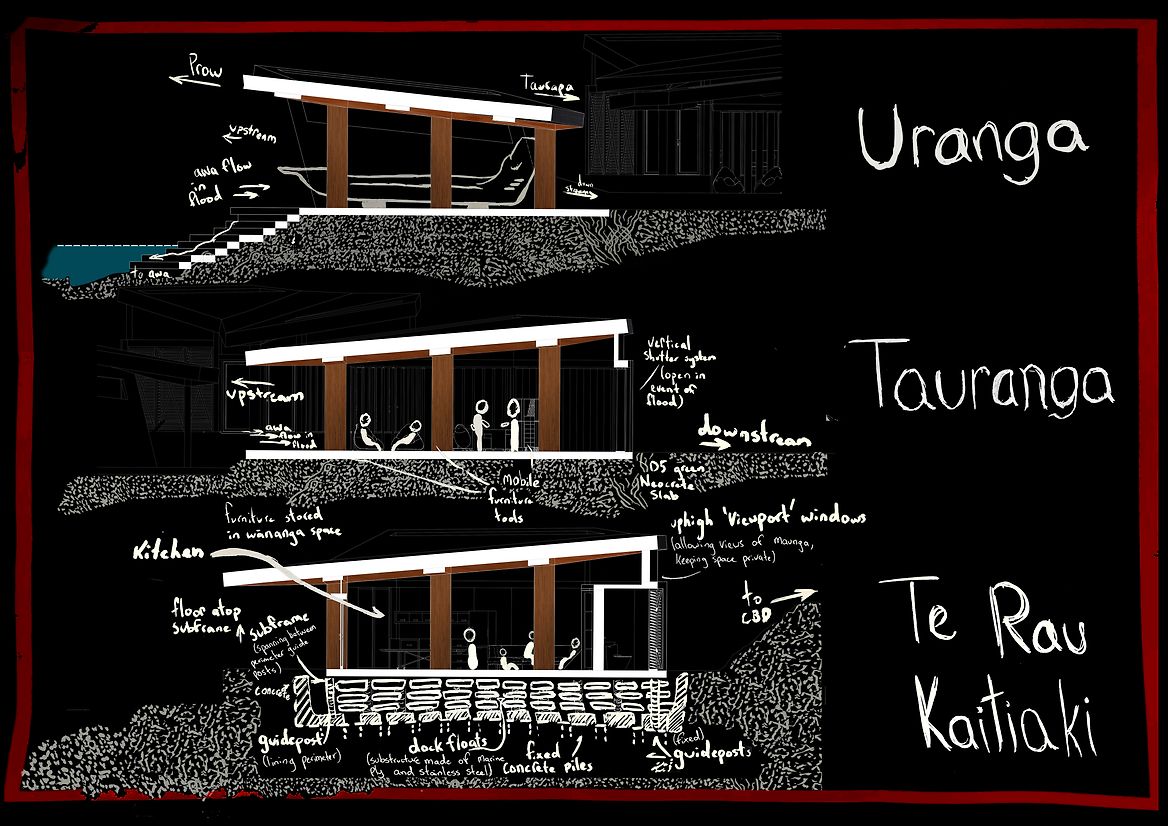 Prow
Taurapa
upstream
awa flow
in
flood
down
stream
to awa
Uranga
upstream
awa
flow in
flood
vertical
shutter system
(open in
event of
flood)
downstream
Mobile
furniture
tools
D5 green
Neocrete
Slab
Tauranga
furniture stored
in wānanga space
Kitchen
uphigh 'viewport' windows
(allowing views of Maunga,
keeping space private)
to
CBD
floor atop
subframe
subframe
(spanning between
perimeter guide
posts)
concrete
guidepost
(lining perimeter)
dock floats
(substructure made of marine
Ply and stainless steel)
fixed
concrete piles
(fixed)
guideposts
Te Rau
Kaitiaki